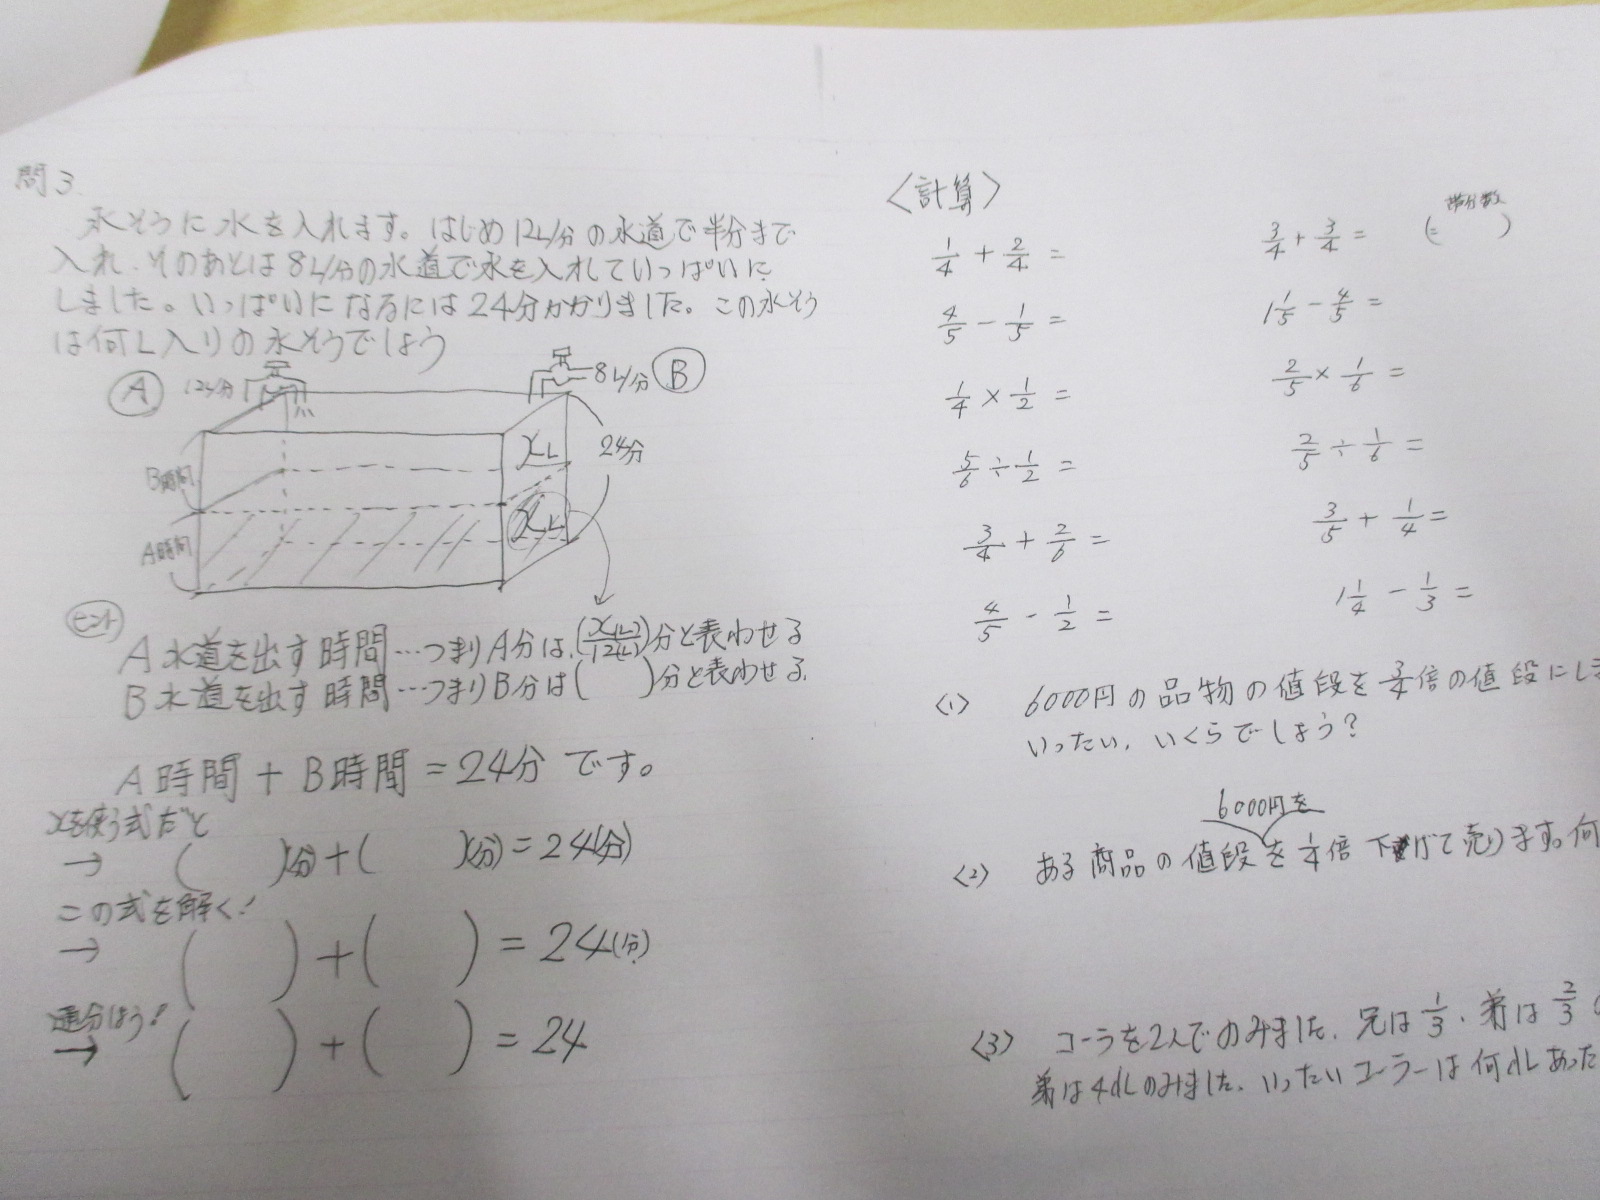 問3.
水そうに水を入れます。はじめ12L/分の水道で半分まで
入れ、そのあとは8L/分の水道で水を入れていっぱいに
しました。いっぱいになるには24分かかりました。この水そう
は何L入りの水そうでしょう
A 12L/分
8L/分 B
24分
xL
xL
B時間
A時間
ヒント
A水道を出す時間…つまりA分は、(x(L)/12(L))分と表わせる
B水道を出す時間…つまりB分は( )分と表わせる.
A時間+B時間=24分です。
xを使う式だと
→ ( )(分)+( )(分)=24(分)
この式を解く!
→ ( )+( )=24(分)
通分しよう!
→ ( )+( )=24
〈計算〉
1/4 + 2/4 =
4/5 - 1/5 =
1/4 × 1/2 =
5/6 ÷ 1/2 =
3/4 + 2/6 =
4/5 - 1/2 =
帯分数
3/4 + 3/4 = (= )
1 1/5 - 4/5 =
2/5 × 1/6 =
2/5 ÷ 1/6 =
3/5 + 1/4 =
1 1/4 - 1/3 =
〈1〉 6000円の品物の値段を3/4倍の値段にしま
いったい、いくらでしょう?
6000円を
〈2〉 ある商品の値段を1/4倍 下げて売ります。何
〈3〉 コーラを2人でのみました、兄は1/3、弟は2/3の
弟は4dLのみました、いったいコーラーは何dLあった